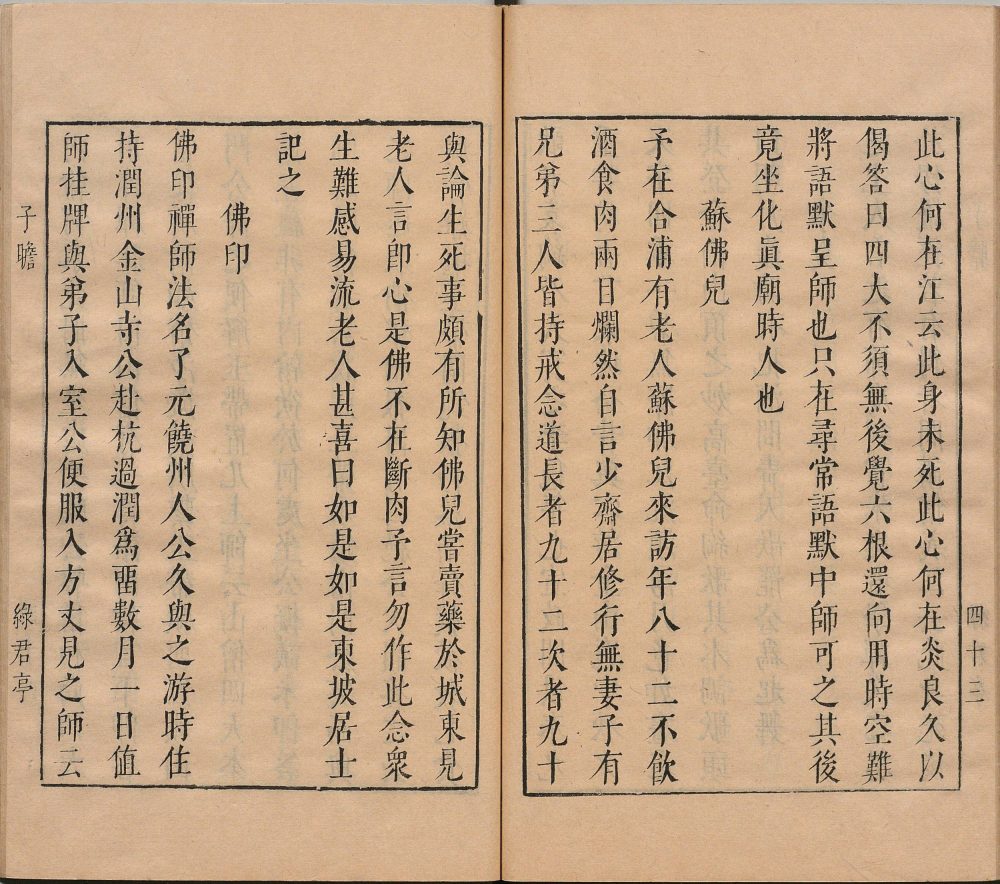 此心何在江云此身未死此心何在炎良久以
偈答曰四大不須無後覺六根還向用時空難
將語默呈師也只在尋常語默中師可之其後
竟坐化眞廟時人也
蘇佛兒
予在合浦有老人蘇佛兒來訪年八十二不飮
酒食肉兩目爛然自言少齋居修行無妻子有
兄弟三人皆持戒念道長者九十二次者九十
四十三
與論生死事頗有所知佛兒嘗賣藥於城東見
老人言卽心是佛不在斷肉予言勿作此念衆
生難感易流老人甚喜曰如是如是東坡居士
記之
佛印
佛印禪師法名了元饒州人公久與之游時住
持潤州金山寺公赴杭過潤爲畱數月一日值
師挂牌與弟子入室公便服入方丈見之師云
子瞻
綠君亭